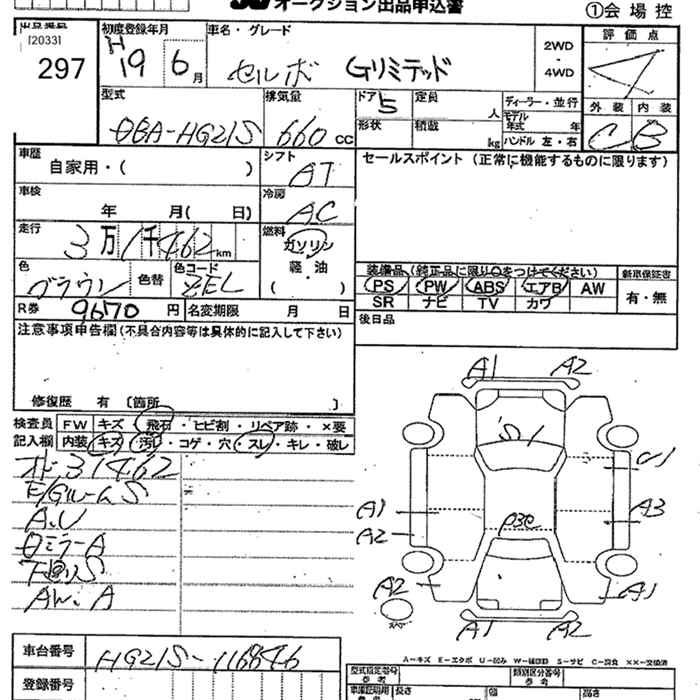 オークション出品申込書
①会場控
出品番号
[20331]
297
初度登録年月
H19 6月
車名・グレード
セルボ Gリミテッド
2WD
・
4WD
評価点
型式
DBA-HG21S
排気量
660 CC
ドア 5
定員
人
形状
積載
kg
ディーラー・並行
モデル年式 年
ハンドル 左・右
外装
内装
C
B
車歴
自家用・( )
シフト
AT
セールスポイント (正常に機能するものに限ります)
車検
年 月( 日)
冷房
AC
走行
3万1千462km
燃料
ガソリン
軽・油
( )
色
ブラウン
色替
色コード
ZEL
装備品 (純正品に限り○をつけてください)
PS PW ABS エアB AW
SR ナビ TV カワ
新車保証書
有・無
R券
9670 円
名変期限 月 日
後日品
注意事項申告欄(不具合内容等は具体的に記入して下さい)
修復歴 有 〔箇所 〕
検査員
記入欄
FW キズ 飛石・ヒビ割・リペア跡・×要
内装 キズ 汚れ・コゲ・穴・スレ・キレ・破レ
31462
E/GルームS
A.U
ミラーA
下回りS
AW.A
A1
A2
S1
A1
A2
A3
P3C
A2
A1
A1
A2
車台番号
HG21S-116846
登録番号
A-キズ E-エクボ U-凹み W-補修跡 S-サビ C-腐食 XX-交換済
型式指定番号
類別区分番号
長さ
幅
高さ